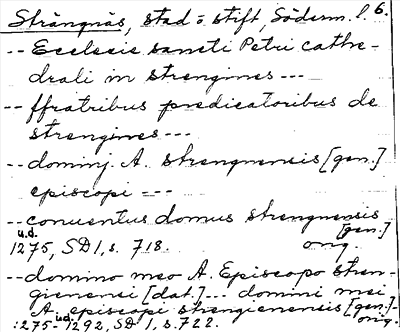 Strängnäs, stad o stift, Söderm. l. 6.
-- Ecclecie sancti Petri cathe-
drali in strengines ---
-- ffratribus predicatoribus de
strengines ---
-- dominj. A. strengnensis [gen.]
episcopi ---
-- conuentus domus strengnensis
[gen.]
u.d.
1275, SD 1, s. 718. orig.
-- domino meo A. Episcopo stren-
gienensi [dat.]... domini mei
A. episcopi strengienensis [gen.]
u.d.
:1275-1292, SD 1, s. 722. orig.